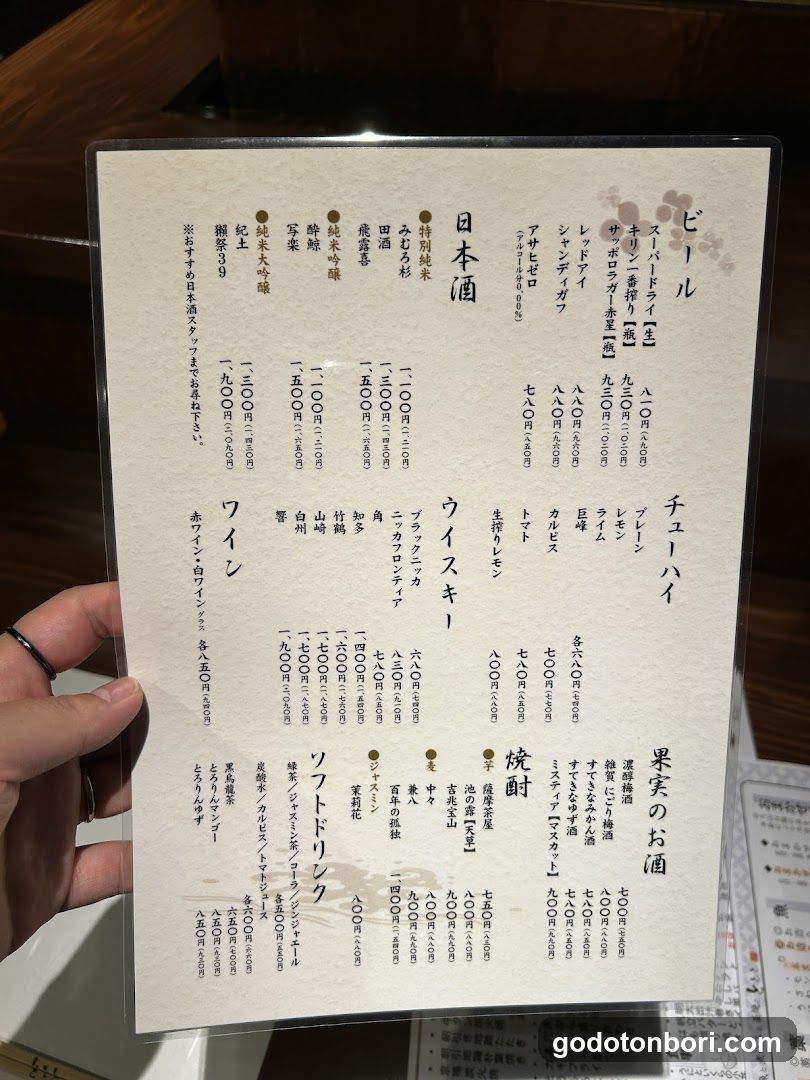 ビール
スーパードライ【生】 八一〇円(八九〇円)
キリン一番搾り【瓶】 九三〇円(一、〇二〇円)
サッポロラガー赤星【瓶】 九三〇円(一、〇二〇円)
レッドアイ 八八〇円(九六〇円)
シャンディガフ 八八〇円(九六〇円)
アサヒゼロ 七八〇円(八五〇円)
(アルコール分0.00%)
日本酒
●特別純米
みむろ杉 一、一〇〇円(一、二一〇円)
田酒 一、三〇〇円(一、四三〇円)
飛露喜 一、五〇〇円(一、六五〇円)
●純米吟醸
酔鯨 一、一〇〇円(一、二一〇円)
写楽 一、五〇〇円(一、六五〇円)
●純米大吟醸
紀土 一、三〇〇円(一、四三〇円)
獺祭39 一、九〇〇円(二、〇九〇円)
※おすすめ日本酒スタッフまでお尋ね下さい。
チューハイ
プレーン
レモン
ライム
巨峰 各六八〇円(七四〇円)
カルピス 七〇〇円(七七〇円)
トマト 七八〇円(八五〇円)
生搾りレモン 八〇〇円(八八〇円)
ウイスキー
ブラックニッカ 六八〇円(七四〇円)
ニッカフロンティア 八三〇円(九一〇円)
角 七八〇円(八五〇円)
知多 一、四〇〇円(一、五四〇円)
竹鶴 一、六〇〇円(一、七六〇円)
山崎 一、七〇〇円(一、八七〇円)
白州 一、七〇〇円(一、八七〇円)
響 一、九〇〇円(二、〇九〇円)
ワイン
赤ワイン・白ワイン グラス 各八五〇円(九四〇円)
果実のお酒
濃醇梅酒 七〇〇円(七五〇円)
雑賀 にごり梅酒 八〇〇円(八八〇円)
すてきなみかん酒 七八〇円(八五〇円)
すてきなゆず酒 七八〇円(八五〇円)
ミスティア【マスカット】 九〇〇円(九九〇円)
焼酎
●芋
薩摩茶屋 七五〇円(八三〇円)
池の露【天草】 八〇〇円(八八〇円)
吉兆宝山 九〇〇円(九九〇円)
●麦
中々 八〇〇円(八八〇円)
兼八 九〇〇円(九九〇円)
百年の孤独 一、四〇〇円(一、五四〇円)
●ジャスミン
茉莉花 八〇〇円(八八〇円)
ソフトドリンク
緑茶/ジャスミン茶/コーラ/ジンジャエール 各五〇〇円(五五〇円)
炭酸水/カルピス/トマトジュース 各六〇〇円(六六〇円)
黒烏龍茶 六五〇円(七〇〇円)
とろりんマンゴー 八五〇円(九三〇円)
とろりんゆず 八五〇円(九三〇円)
godotonbori.com